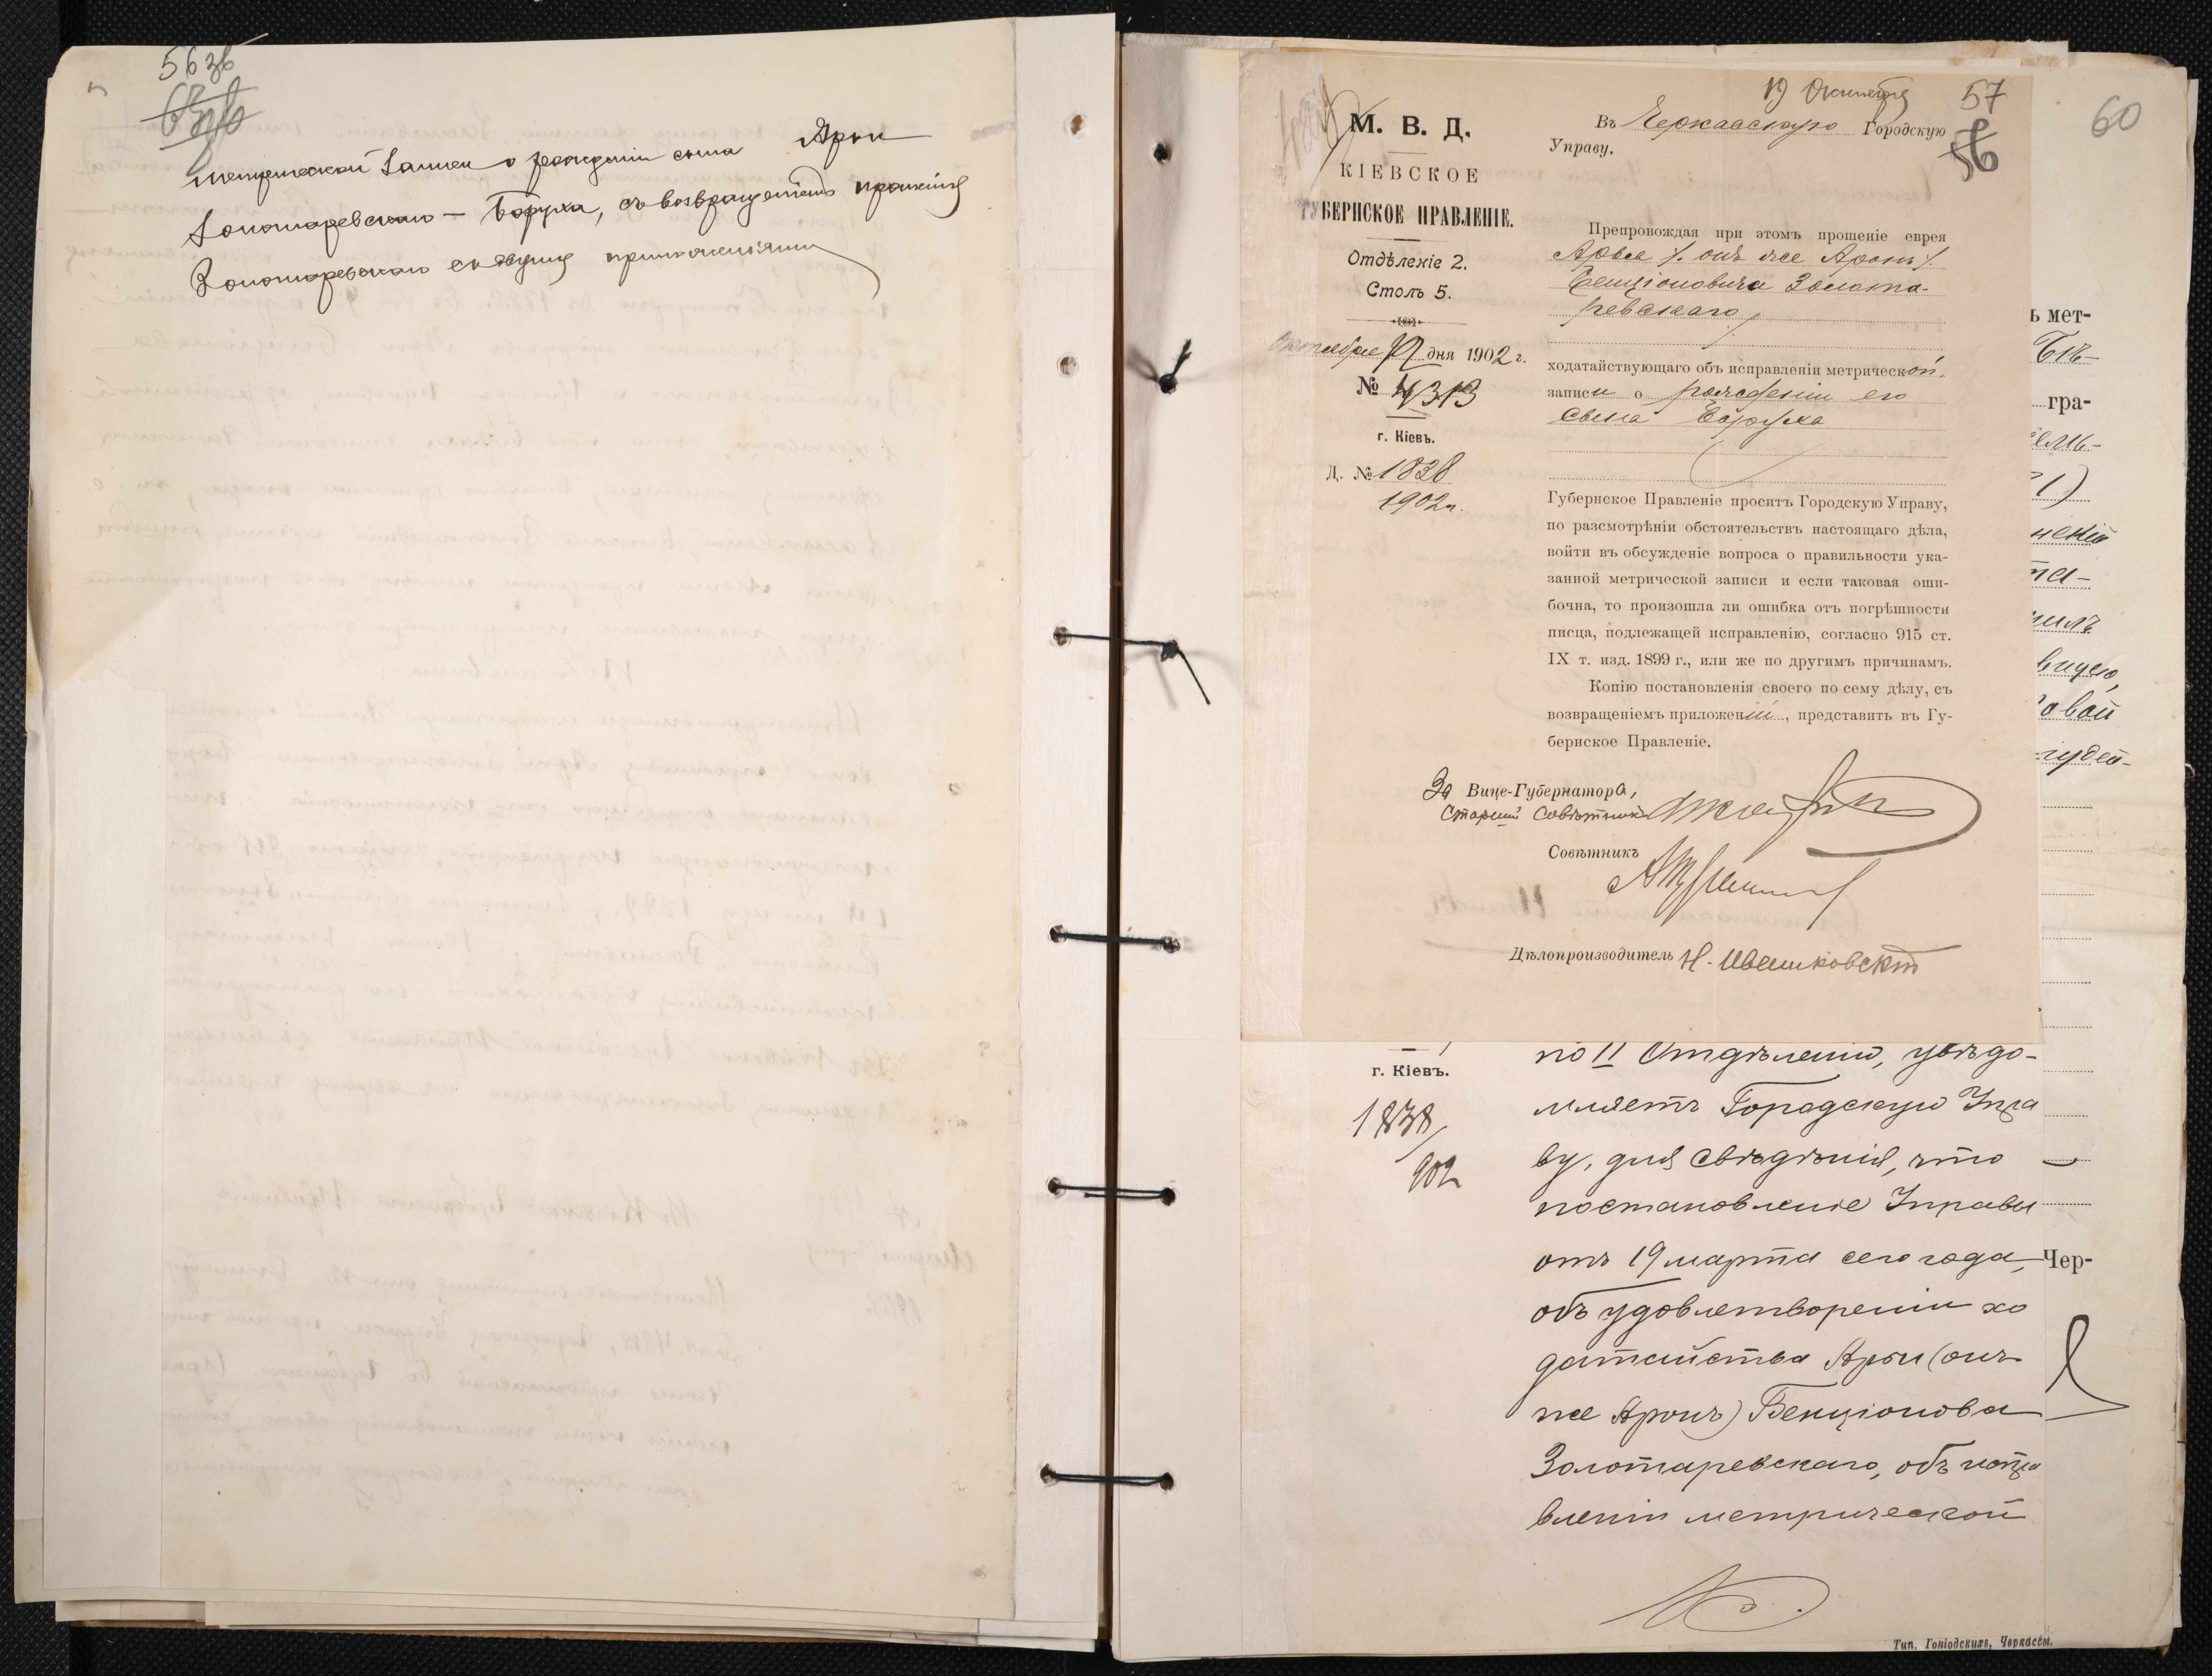 56 зв
63 зв
метрической записи о рожденіи сына Арьи
Золотаревскаго — Боруха, съ возвращеніемъ прошенія
Золотаревскаго съ двумя приложеніями
19 Октября
57
56
60
М. В. Д.
КІЕВСКОЕ
ГУБЕРНСКОЕ ПРАВЛЕНІЕ.
Отдѣленіе 2.
Столъ 5.
Октября 12 дня 1902 г.
№ 4313
г. Кіевъ.
Д. № 1838
1902 г.
Въ Черкасскую Городскую
Управу.
Препровождая при этомъ прошеніе еврея
Арьи /. онъ же Аронъ /.
Бенціоновича Золота-
ревскаго,
ходатайствующаго объ исправленіи метрической
записи о рожденіи его
сына Боруха
Губернское Правленіе проситъ Городскую Управу,
по разсмотрѣніи обстоятельствъ настоящаго дѣла,
войти въ обсужденіе вопроса о правильности ука-
занной метрической записи и если таковая оши-
бочна, то произошла ли ошибка отъ погрѣшности
писца, подлежащей исправленію, согласно 915 ст.
IX т. изд. 1899 г., или же по другимъ причинамъ.
Копію постановленія своего по сему дѣлу, съ
возвращеніемъ приложеній, представить въ Гу-
бернское Правленіе.
За Вице-Губернатора,
Старшій Совѣтникъ
Совѣтникъ
Дѣлопроизводитель Н. Ивашковскій
г. Кіевъ.
1838/
902
по II Отдѣленію, увѣдо-
мляетъ Городскую Упра
ву, для свѣдѣнія, что
постановленіе Управы
отъ 19 марта сего года,
объ удовлетвореніи хо
датайства Арьи (онъ
же Аронъ) Бенціонова
Золотаревскаго, объ испра
вленіи метрической
ь мет-
гра-
Чер-
Тип. Гоніодскихъ, Черкассы.